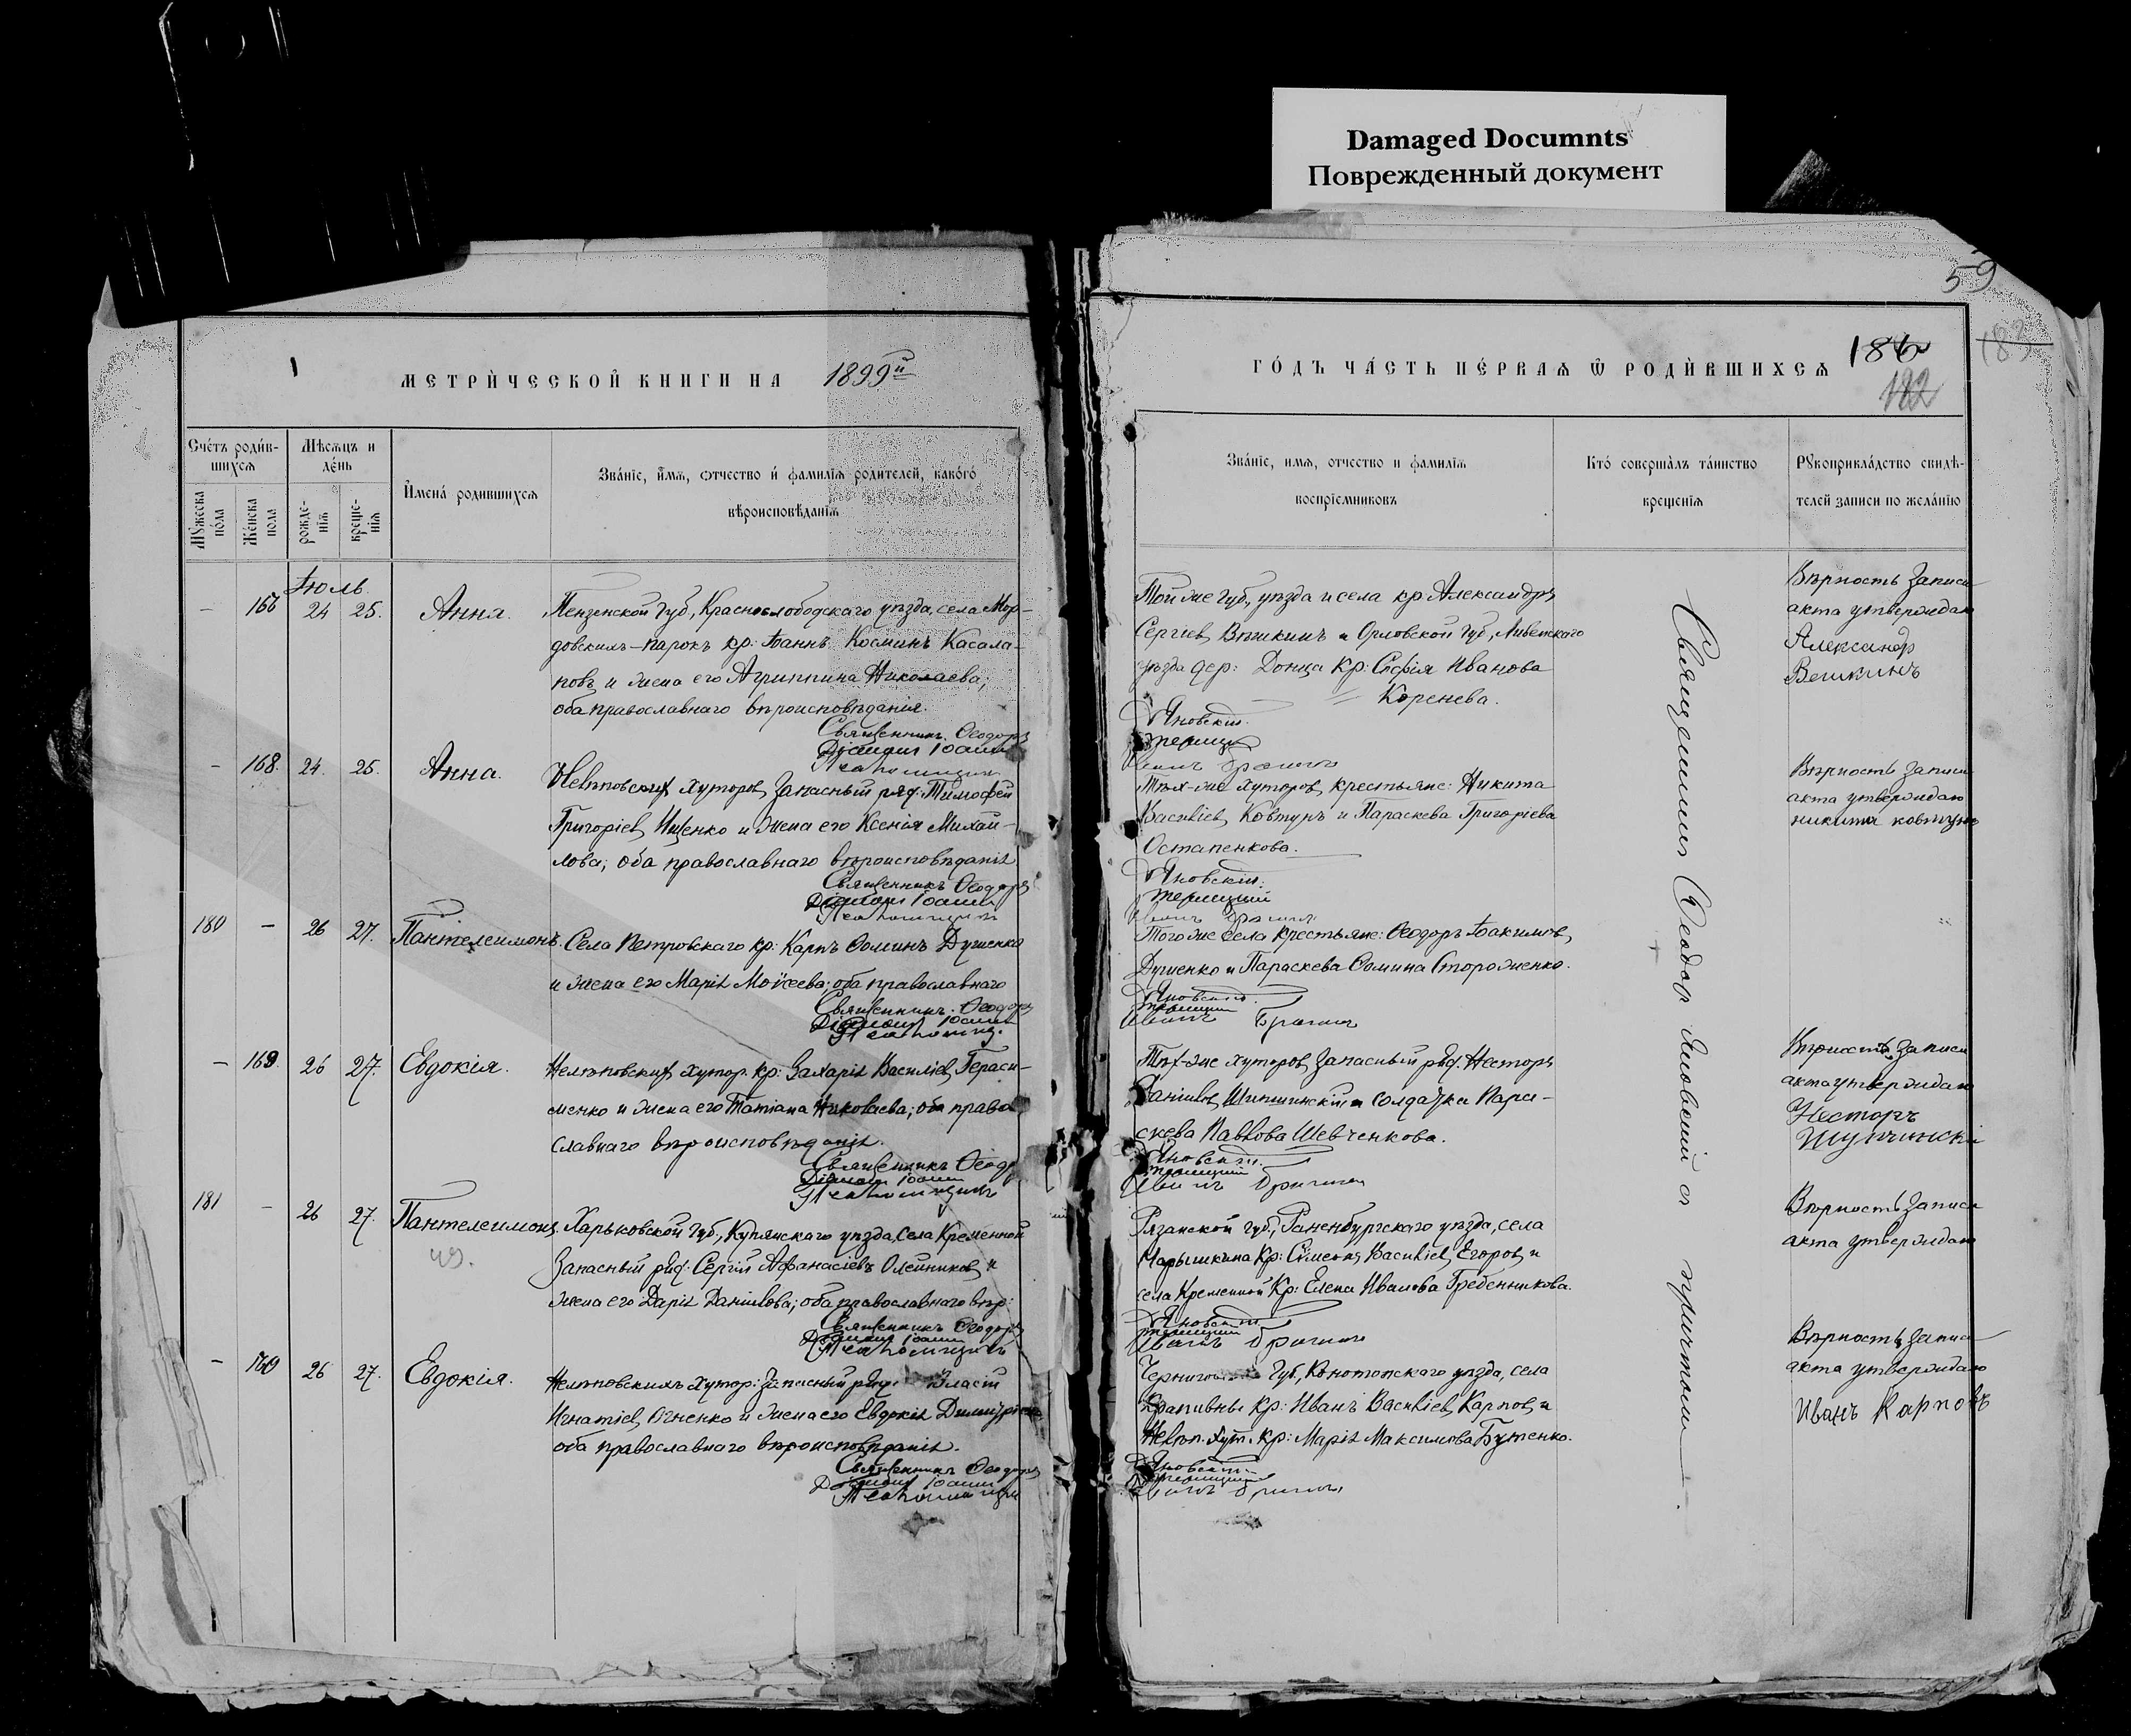 Damaged Documnts
Поврежденный документ
59
183
МЕТРИ́ЧЕСКОЙ КНИГИ НА 1899й
ГО́ДЪ ЧА́СТЬ ПЕ́РВАѦ Ѿ РОДИ́ВШИХСѦ
122
Сче́тъ роди́в-
шихсѧ
Мѣсѧцъ и
де́нь
Мꙋжеска
по́ла
Же́нска
пола
рожде-
нїѧ
креще-
нїѧ
Имена́ родившихсѧ
Зва́нїе, и́мѧ, ѻтчество и́ фамилїѧ родителей, како́гѡ
вѣроисповѣ́данїѧ
Зва́нїе, имѧ, отчество и фамилїѧ
воспрїемниковъ
Кто́ соверша́лъ та́инство
крещенїѧ
Рꙋкоприкла́дство свидѣ́-
телей записи по жела́нїю
Іюль
24 25. Анна. Пензенской губ., Краснослободскаго уѣзда, села Мор-
довскихъ-Парокъ кр: Іоаннъ Косминъ Касала-
повъ и жена его Агриппина Николаева;
оба православнаго вѣроисповѣданія.
Священникъ Ѳеодоръ
Діаконъ Іоаннъ
Той же губ., уѣзда и села кр. Александръ
Сергіев Вѣшкинъ и Орловской губ., Ливенскаго
уѣзда дер: Донца кр: Софія Иванова
Коренева.
Яновскій.
Вѣрность записи
акта утверждаю
Александр
Вешкинъ
– 168. 24. 25. Анна.
хуторов, запасный ряд: Тимофей
Григоріев Ищенко и жена его Ксенія Михай-
лова; оба православнаго вѣроисповѣданія
Священникъ Ѳеодоръ
Діаконъ Іоаннъ
Тѣх-же хуторов, крестьяне: Никита
Василіев Ковтунъ и Параскева Григоріева
Остапенкова.
Яновскій.
Вѣрность записи
акта утверждаю
никита ковтунъ
180 – 26 27. Пантелеимонъ. Села Петровскаго кр: Карпъ Ѳоминъ Дущенко
и жена его Марія Моѵсеева; оба православнаго
Священникъ Ѳеодоръ
Діаконъ Іоаннъ
Того же села крестьяне: Ѳеодоръ Іоакимов
Дущенко и Параскева Ѳомина Стороженко.
Яновскій.
Иванъ
– 169. 26 27. Евдокія.
хутор. кр: Захарія Василіев Гераси-
менко и жена его Татіана Николаева; оба право-
славнаго вѣроисповѣданія.
Священникъ Ѳеодоръ
Діаконъ Іоаннъ
Тѣх-же хуторов, запасный ряд. Несторъ
Даніилов и солдатка Пара-
скева Павлова Шевченкова.
Яновскій.
Иванъ
Вѣрность записи
акта утверждаю
Несторъ
181 – 26 27. Пантелеимонъ. Харьковской губ., Купянскаго уѣзда, села Кременной
запасный ряд: Сергій Афанасіевъ Олейников и
жена его Дарія Даніилова; оба православнаго вѣр:
Священникъ Ѳеодоръ
Діаконъ Іоаннъ
Рязанской губ., Раненбургскаго уѣзда, села
кр: Сѵмеонъ Василіев Егоров и
села Кременной кр: Елена Иванова Гребенникова.
Яновскій
Иванъ
Вѣрность записи
акта утверждаю
– 170 26 27. Евдокія.
хутор: запасный ряд: Власій
Игнатіев и жена его Евдокія Димитріева
оба православнаго вѣроисповѣданія.
Священникъ Ѳеодоръ
Діаконъ Іоаннъ
губ., Конотопскаго уѣзда, села
кр: Иванъ Василіев Карпов и
хут. кр: Марія Максимова Бутенко.
Яновскій
Вѣрность записи
акта утверждаю
Иванъ Карповъ
Священникъ Ѳеодор Яновскій съ причтомъ